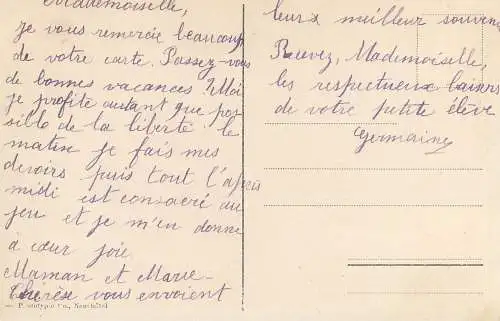 Mademoiselle,
je vous remercie beaucoup
de votre carte. Passez-vous
de bonnes vacances ? Moi
je profite autant que pos
sible de la liberté. le
matin je fais mes
devoirs puis tout l'après
midi est consacré au
jeu et je m'en donne
à cœur joie.
Maman et Marie-
Thérèse vous envoient
leurs meilleur souvenir
Recevez, Mademoiselle,
les respectueux baisers
de votre petite élève
Germaine